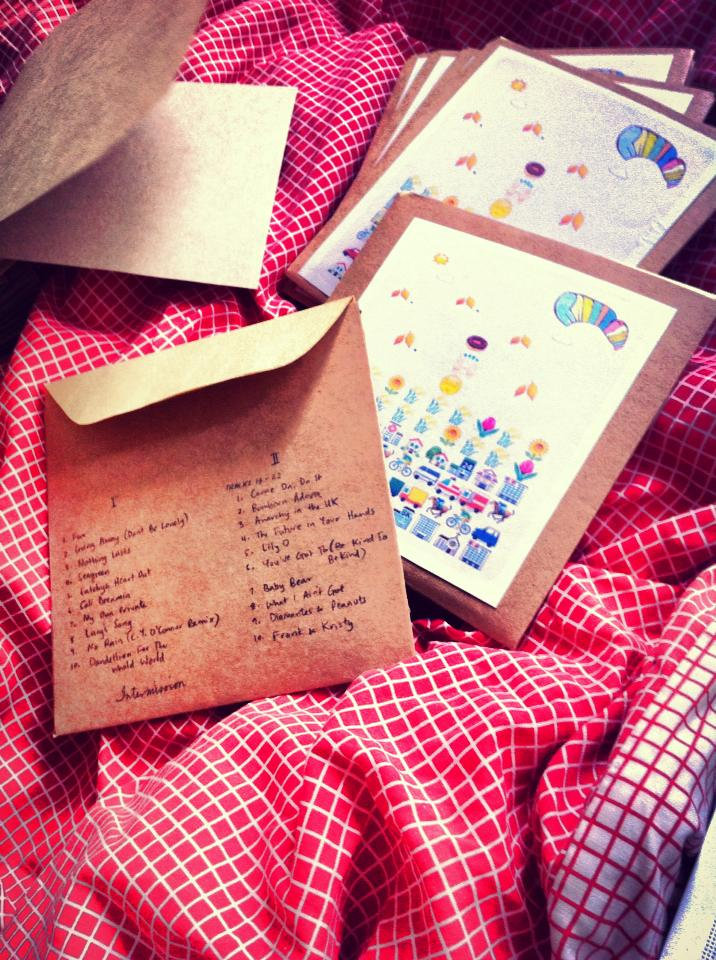 I
1. Fun
2. Going Away (Don't Be Lonely)
3. Nothing Lasts
4. Seagreen
5. Heart Out
6. Cali
7. My Own Private
8. Lazy! Song
9. No Rain (C.Y. O'Connor Remix)
10. Dandelion For The
Whold World
Intermission
II
TRACKS
1. Come On, Do It
2.
3. Anarchy in the UK
4. The Future in Your Hands
5. Lily O
6. You've Got To (Be Kind To
Be Kind)
7. Baby Bear
8. What I Ain't Got
9. Diamantes & Peanuts
10. Frank & Kristy
24